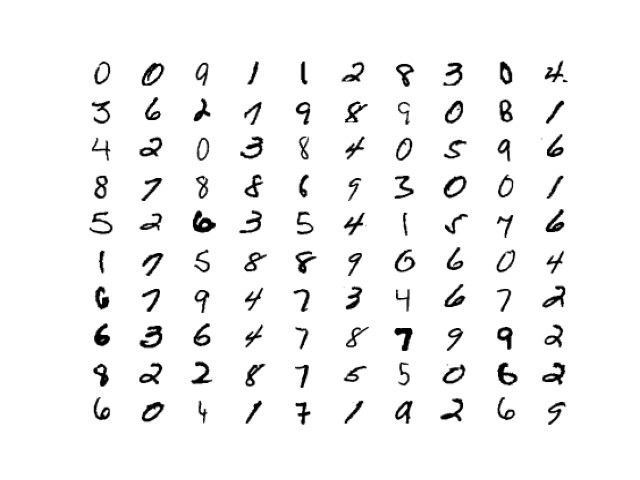 0 0 9 1 1 2 8 3 0 4
3 6 2 7 9 8 9 0 8 1
4 2 0 3 8 4 0 5 9 6
8 7 8 8 6 9 3 0 0 1
5 2 6 3 5 4 1 5 7 6
1 7 5 8 8 9 0 6 0 4
6 7 9 4 7 3 4 6 7 2
6 3 6 4 7 8 7 9 9 2
8 2 2 8 7 5 5 0 6 2
6 0 4 1 7 1 9 2 6 9